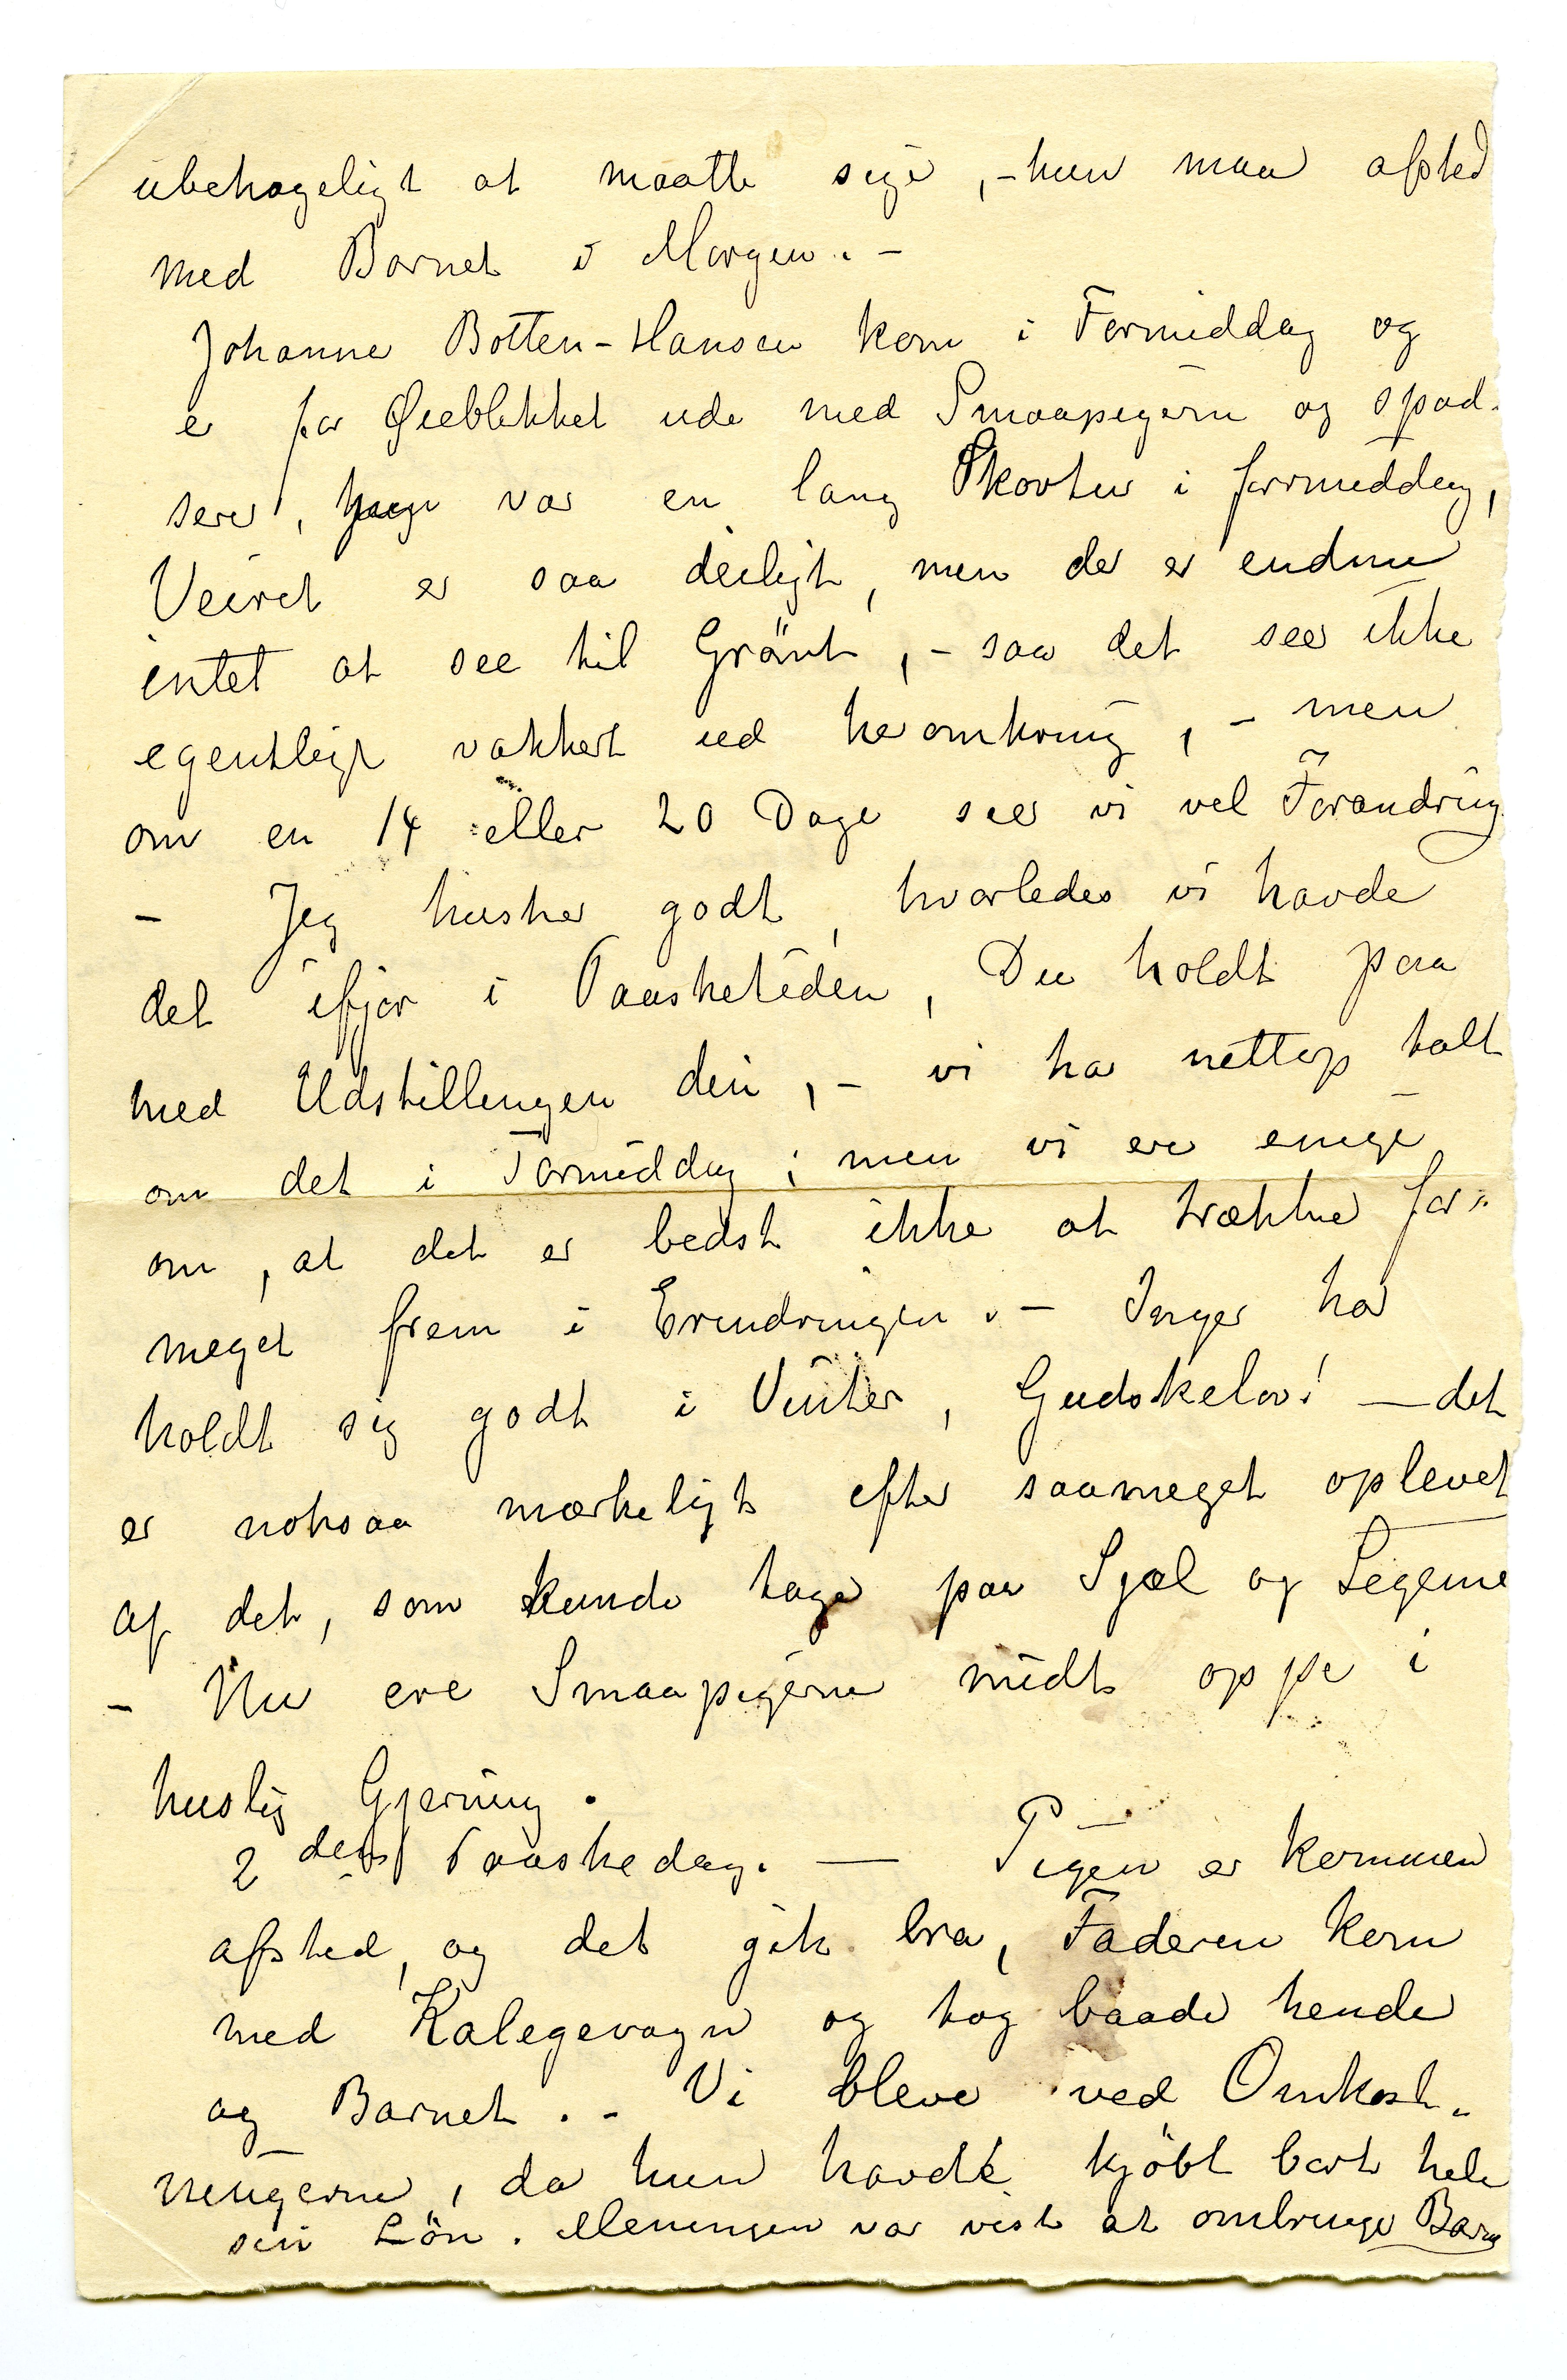 ubehageligt at maatte sige, – hun maa afsted
med Barnet i Morgen. –
Johanne Botten-Hansen kom i Formiddag og
er for Øieblikket ude med Smaapigerne og spad-
serer, Inger var en lang Skovtur i formiddag,
Veiret er saa deiligt, men der er endnu
intet at see til Grönt, – saa det seer ikke
egentligt vakkert ud heromkring, – men
om en 14 eller 20 Dage seer vi vel Forandring.
– Jeg husker godt, hvorledes vi havde
det ifjor i Paasketiden, Du holdt paa
med Udstillingen din, – vi har nettop talt
om det i Formiddag; men vi ere enige
om, at det er bedst ikke at trække for-
meget frem i Erindringen. – Inger har
holdt sig godt i Vinter, Gudskelov! – det
er noksaa mærkeligt efter saameget oplevet
af det, som kunde tage paa Sjæl og Legeme
– Nu ere Smaapigerne midt oppe i
huslig Gjerning.
2den Paaskedag. — Pigen er kommen
afsted, og det gik bra, Faderen kom
med Kalegevogn og tog baade hende
og Barnet. – Vi bleve ved Omkost-
ningerne, da hun havde kjöbt bort hele
sin Lön. Meningen var vist at ombringe Barn